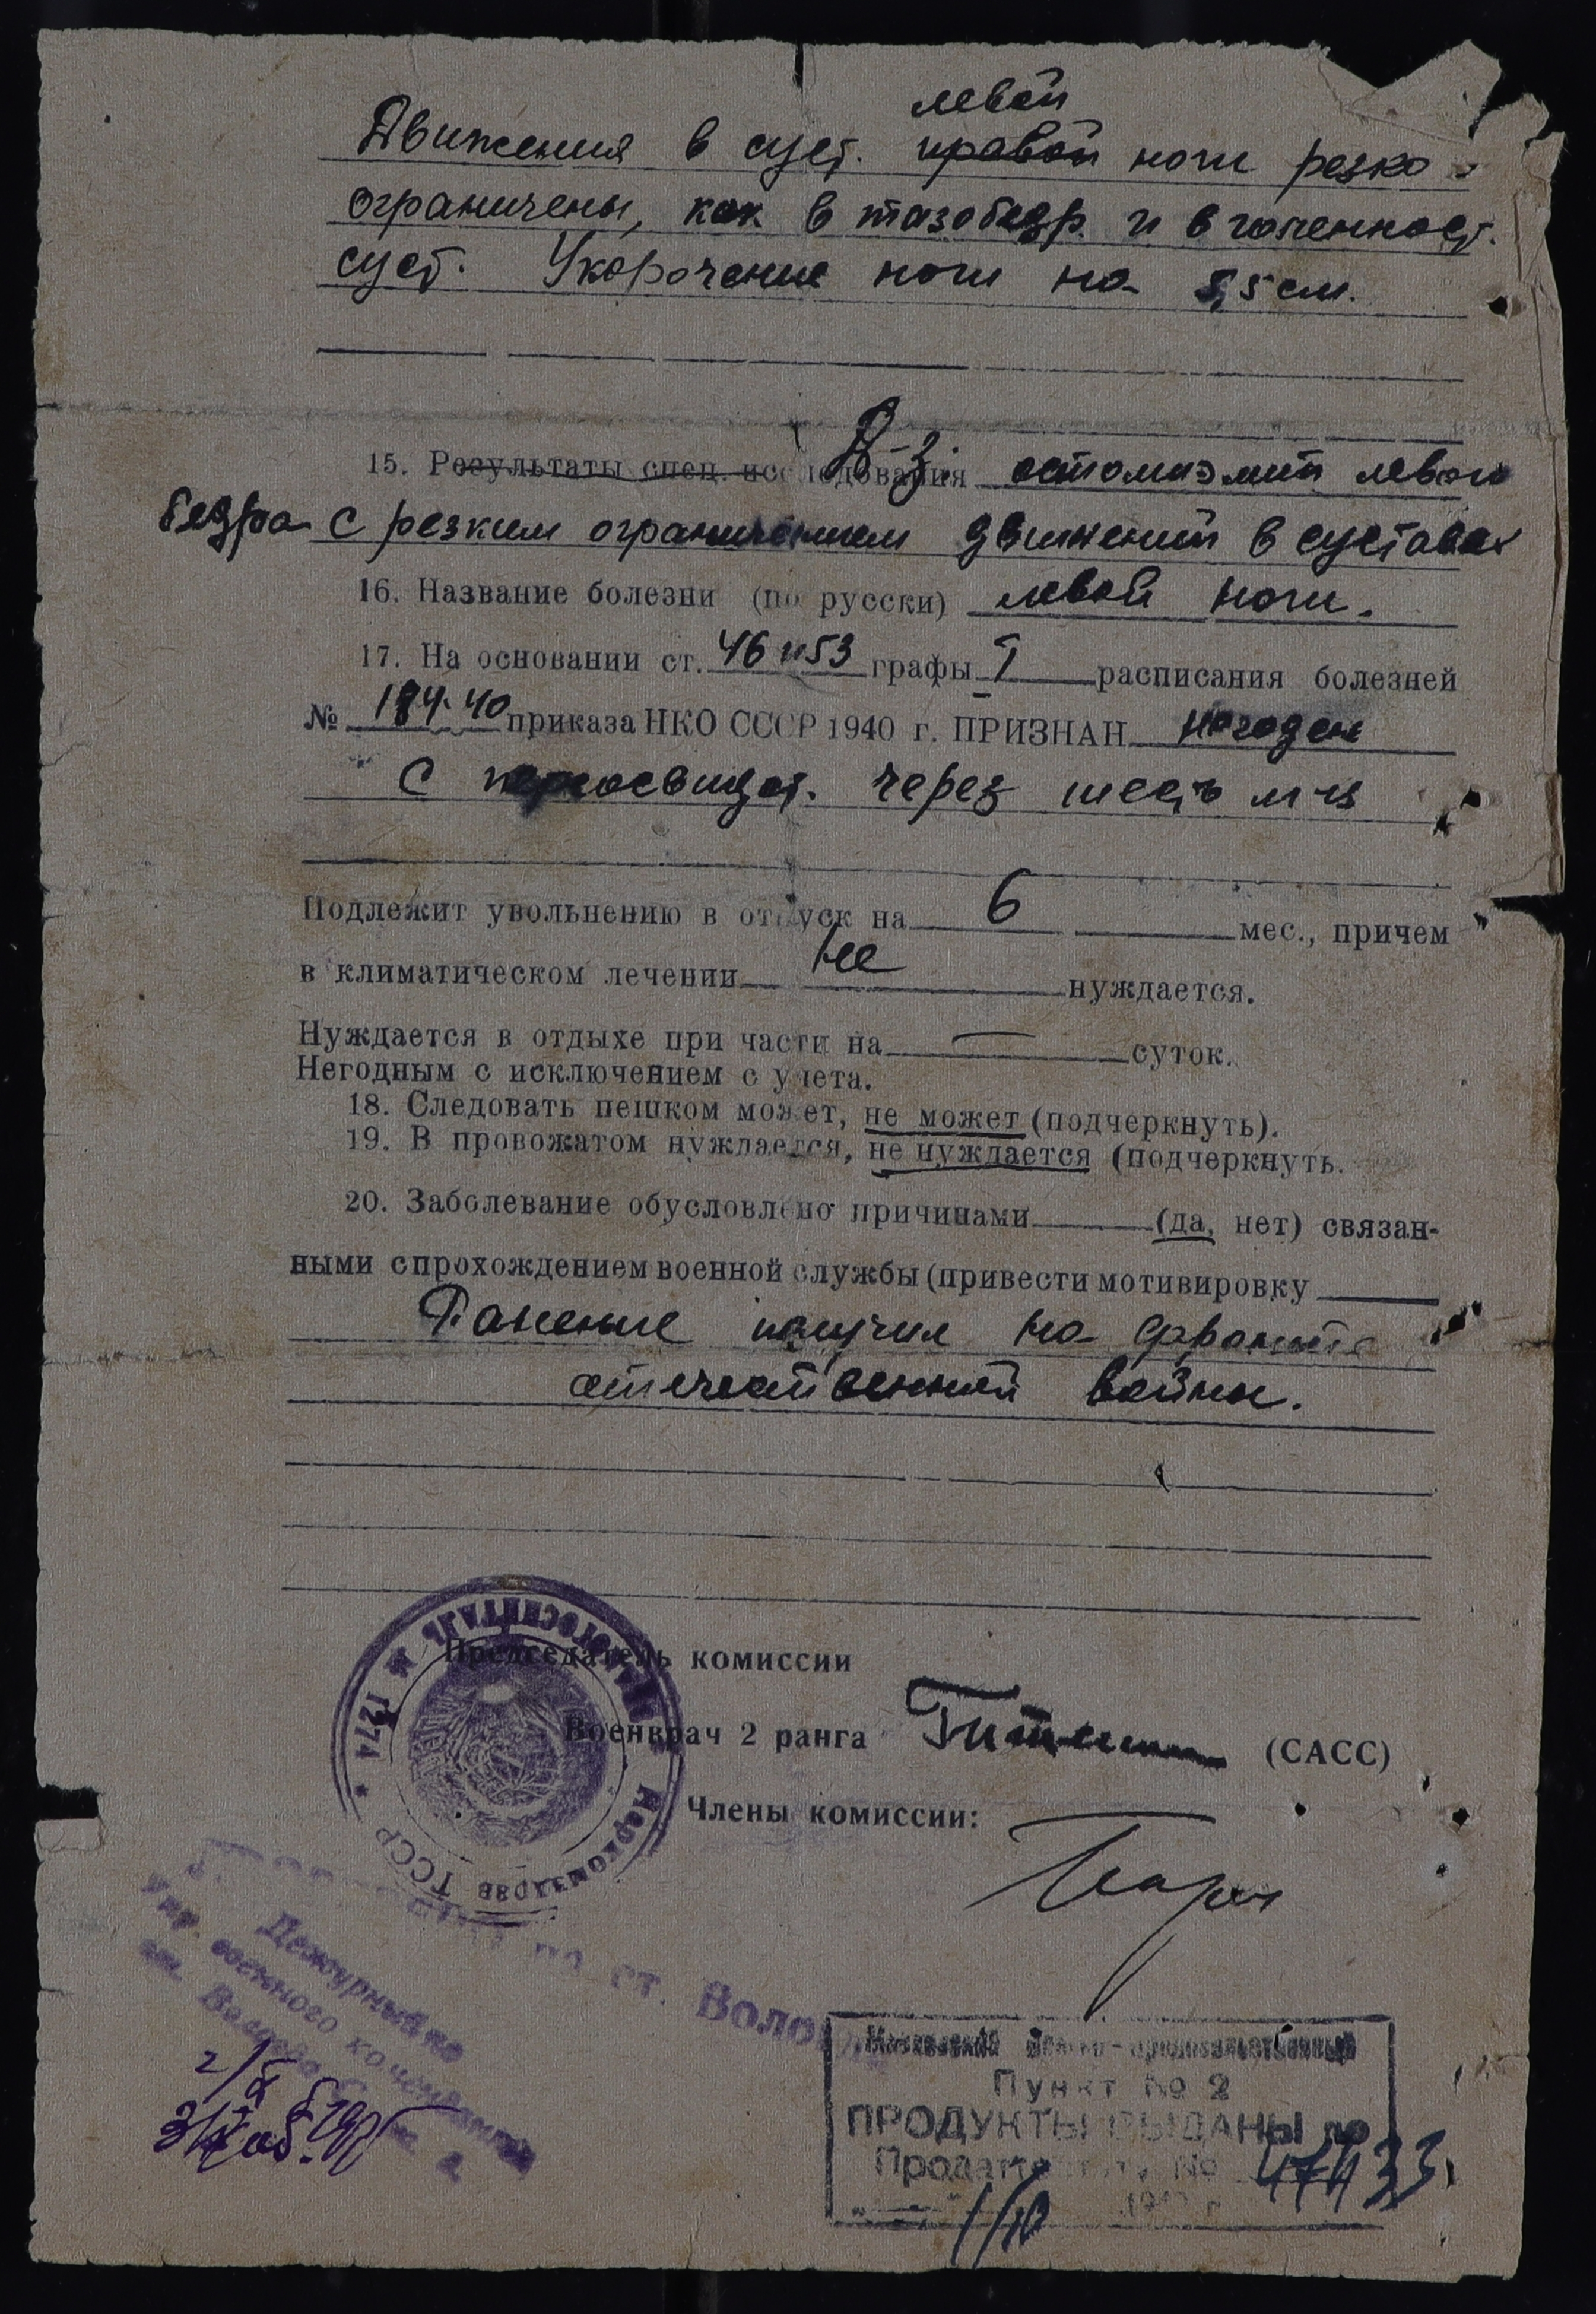 левой
Движения в суст. правой ноги резко
ограничены, как в тазобедр. и в голенност.
суст. Укорочение ноги на 5,5 см.
15. Результаты спец. исследования Д-з. остомиэлит левого
бедра с резким ограничением движений в суставах
16. Название болезни (по русски) левой ноги.
17. На основании ст. 46 и 53 графы I расписания болезней
№ 184-40 приказа НКО СССР 1940 г. ПРИЗНАН негоден
с переосвидет. через шесть м-ц
Подлежит увольнению в отпуск на 6 мес., причем
в климатическом лечении не нуждается.
Нуждается в отдыхе при части на — суток.
Негодным с исключением с учета.
18. Следовать пешком может, не может (подчеркнуть).
19. В провожатом нуждается, не нуждается (подчеркнуть.
20. Заболевание обусловлено причинами (да, нет) связан-
ными с прохождением военной службы (привести мотивировку
Ранение получил на фронте
отечественной войны.
Председатель комиссии
Военврач 2 ранга (САСС)
Члены комиссии:
Эвакогоспиталь № 1274 * Наркомздрав ТССР *
по ст. Вологда
Дежурный по
упр. военного коменданта
ст. Вологда
Московский Военно-продовольственный
Пункт № 2
ПРОДУКТЫ ВЫДАНЫ по
Продатт № 47433
1/10 194 г.